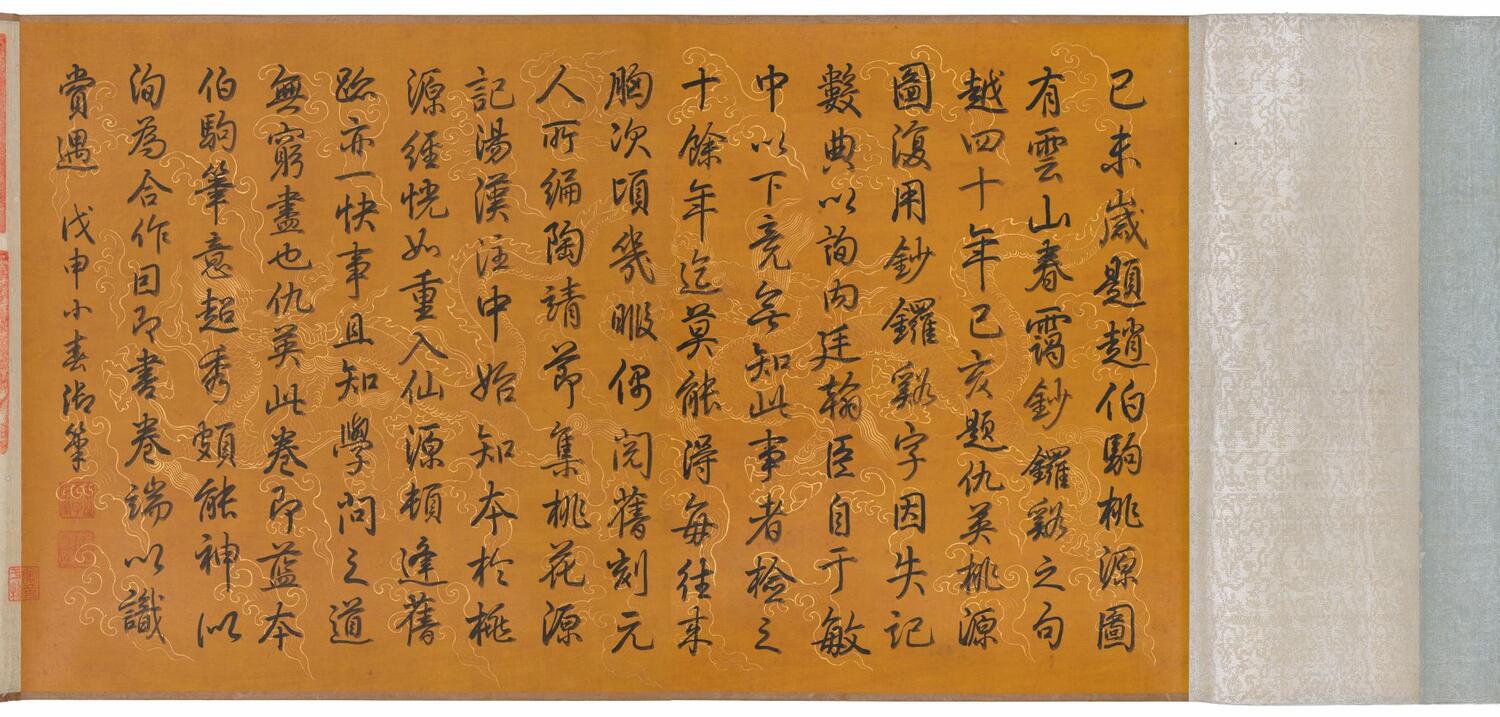 己未歲題趙伯駒桃源圖
有雲山春靄鈔鑼谿之句
越四十年己亥題仇英桃源
圖復用鈔鑼谿字因失記
數典以詢内廷翰臣自于敏
中以下竟無知此事者檢之
十餘年迄莫能得每往來
胸次頃幾暇偶閱舊刻元
人所編陶靖節集桃花源
記湯漢注中始知本於桃
源經恍如重入仙源頓逢舊
跡亦一快事且知學問之道
無窮盡也仇英此卷即藍本
伯駒筆意超秀頗能神似
洵為合作因即書卷端以識
賞遇 戊申小春御筆